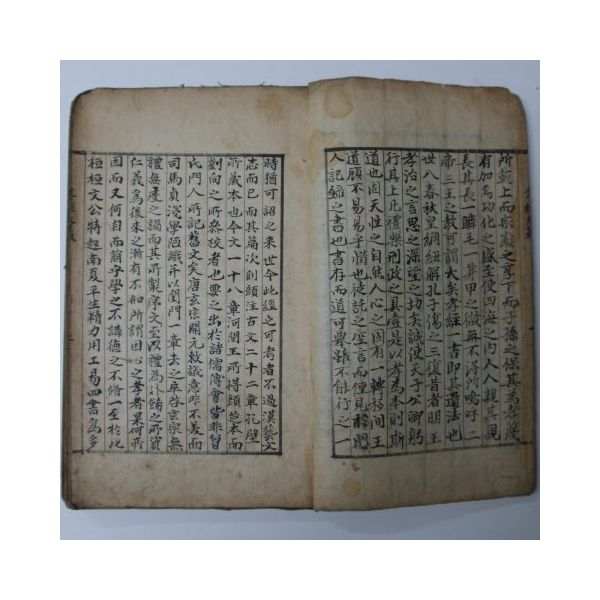 所敬上而宗廟之享下而子孫之保其為孝茂
有加為功化之盛至使四海之內人人親其親
長其長一鱗毛一昇甲之微無不得所嗚呼二
帝三王之教可謂大矣孝經一書即其遺法也
世入春秋皇綱紐解孔子傷之三復昔者明王
孝治之言思之深望之切矣誠使天子公卿躬
行其上凡禮樂刑政之具壹是以孝為本則斯
道也固天性之自然人心之固有一轉移間王
道顧不易易乎惜也徒託之空言而僅見於門
人記錄之書也書存而道可舉雖不能行之一
時猶可詔之來世今此經之可考者不過漢藝文
志而已而其篇次則顏注古文二十二章孔壁
所藏本也今文一十八章河間王所得顏芝本而
劉向之所參校者也要之出於諸儒傅會皆非曾
氏門人所記舊文矣唐玄宗開元敕議意非不美而
司馬貞淺學陋識并以閨門一章去之卒啓玄宗無
禮無度之禍而其所製序文至以禮為外飾之所資
仁義為後來之漸有不知所謂因心之孝者果何所
因而又何自而萌乎學之不講德之不脩一至於此
桓桓文公特起南夏平生精力用工易四書為多